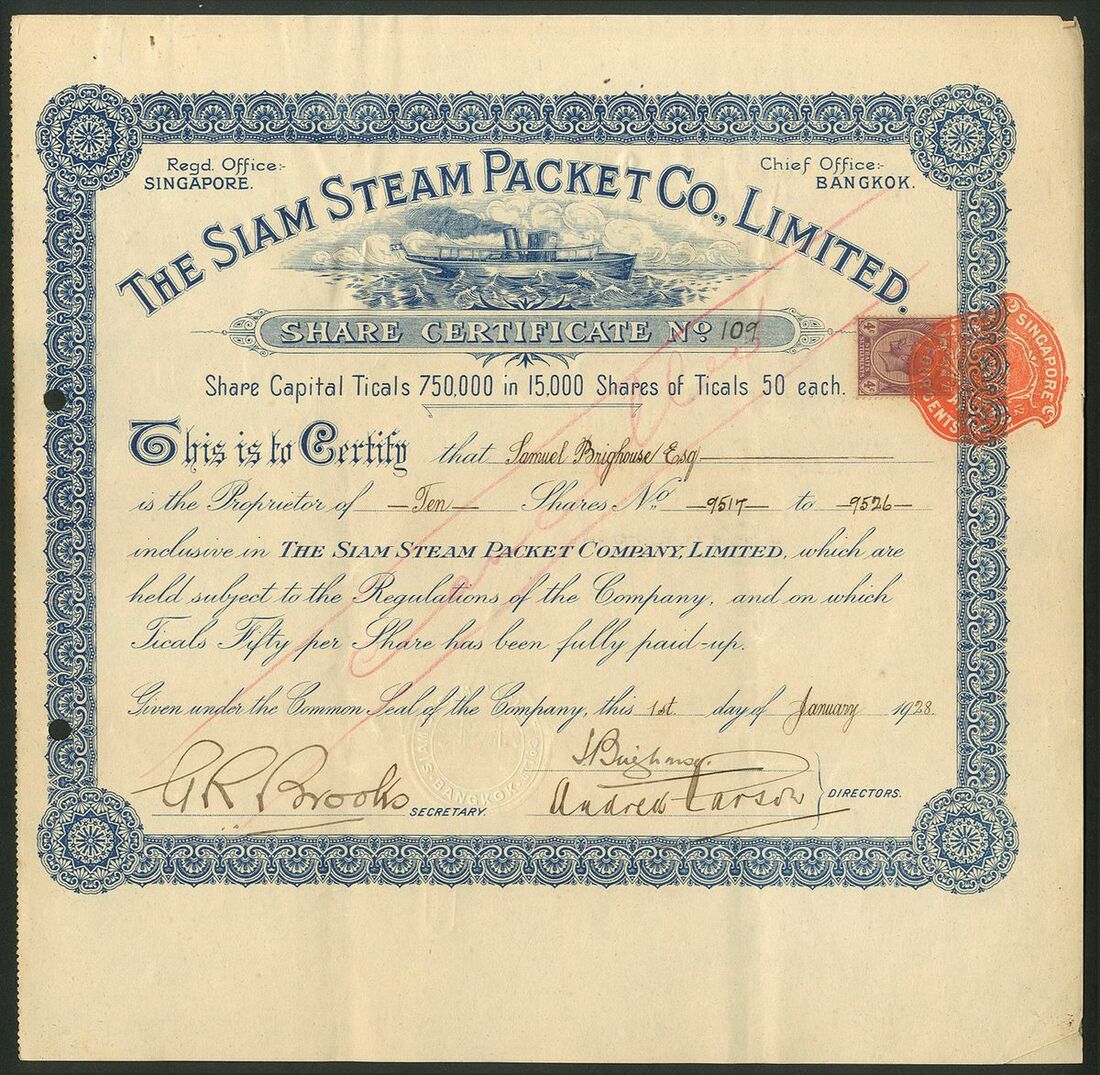 Regd. Office:-
SINGAPORE.
Chief Office:-
BANGKOK.
THE SIAM STEAM PACKET CO., LIMITED.
SHARE CERTIFICATE No. 109
Share Capital Ticals 750,000 in 15,000 Shares of Ticals 50 each.
SINGAPORE
CENTS
This is to Certify that Samuel Brighouse Esq
is the Proprietor of —Ten— Shares No. —9517— to —9526—
inclusive in THE SIAM STEAM PACKET COMPANY, LIMITED, which are
held subject to the Regulations of the Company, and on which
Ticals Fifty per Share has been fully paid-up.
Cancelled
Given under the Common Seal of the Company, this 1st. day of January 1928.
GR Brooks SECRETARY.
Andrew DIRECTORS.
BANGKOK